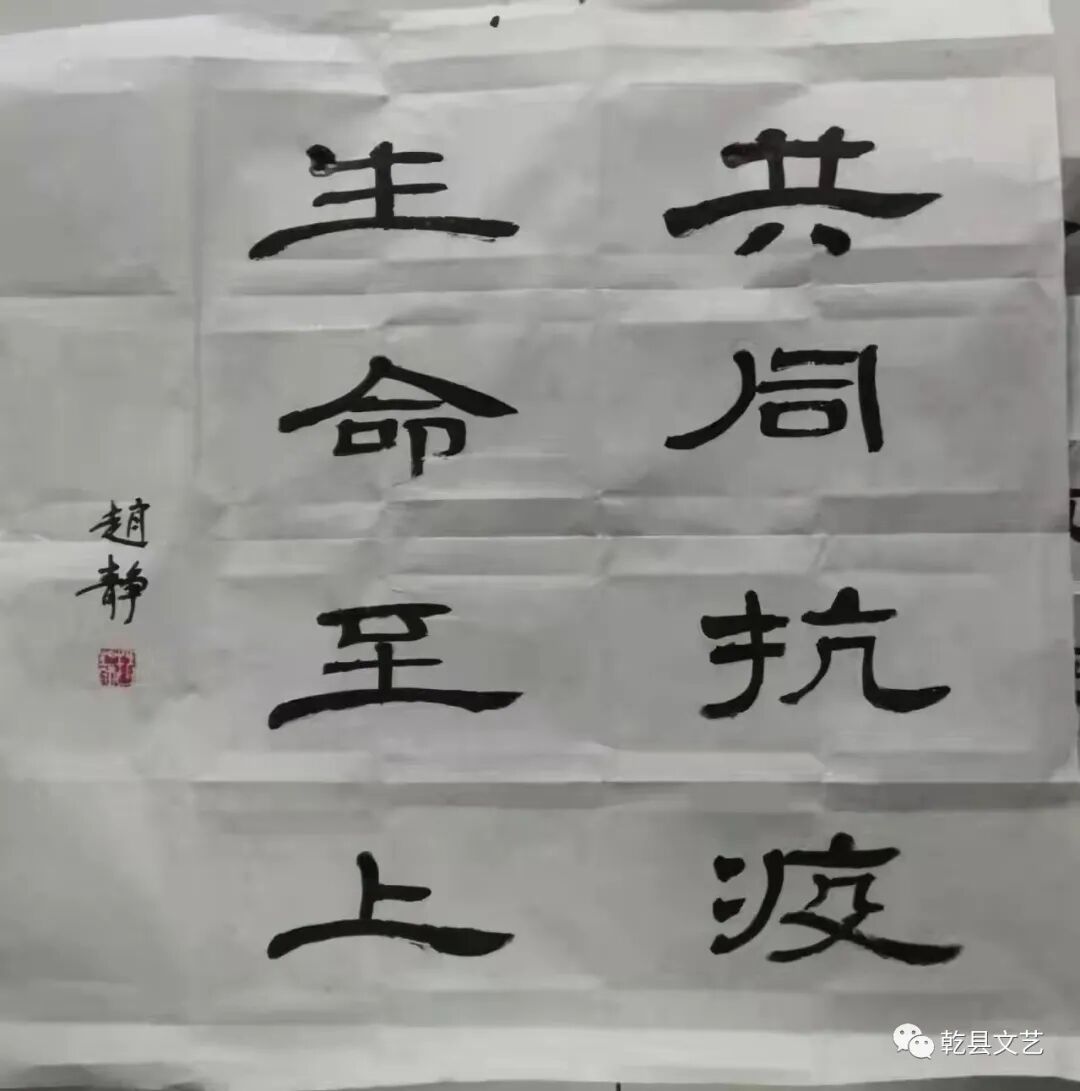 共同抗疫
生命至上
趙静
乾县文艺